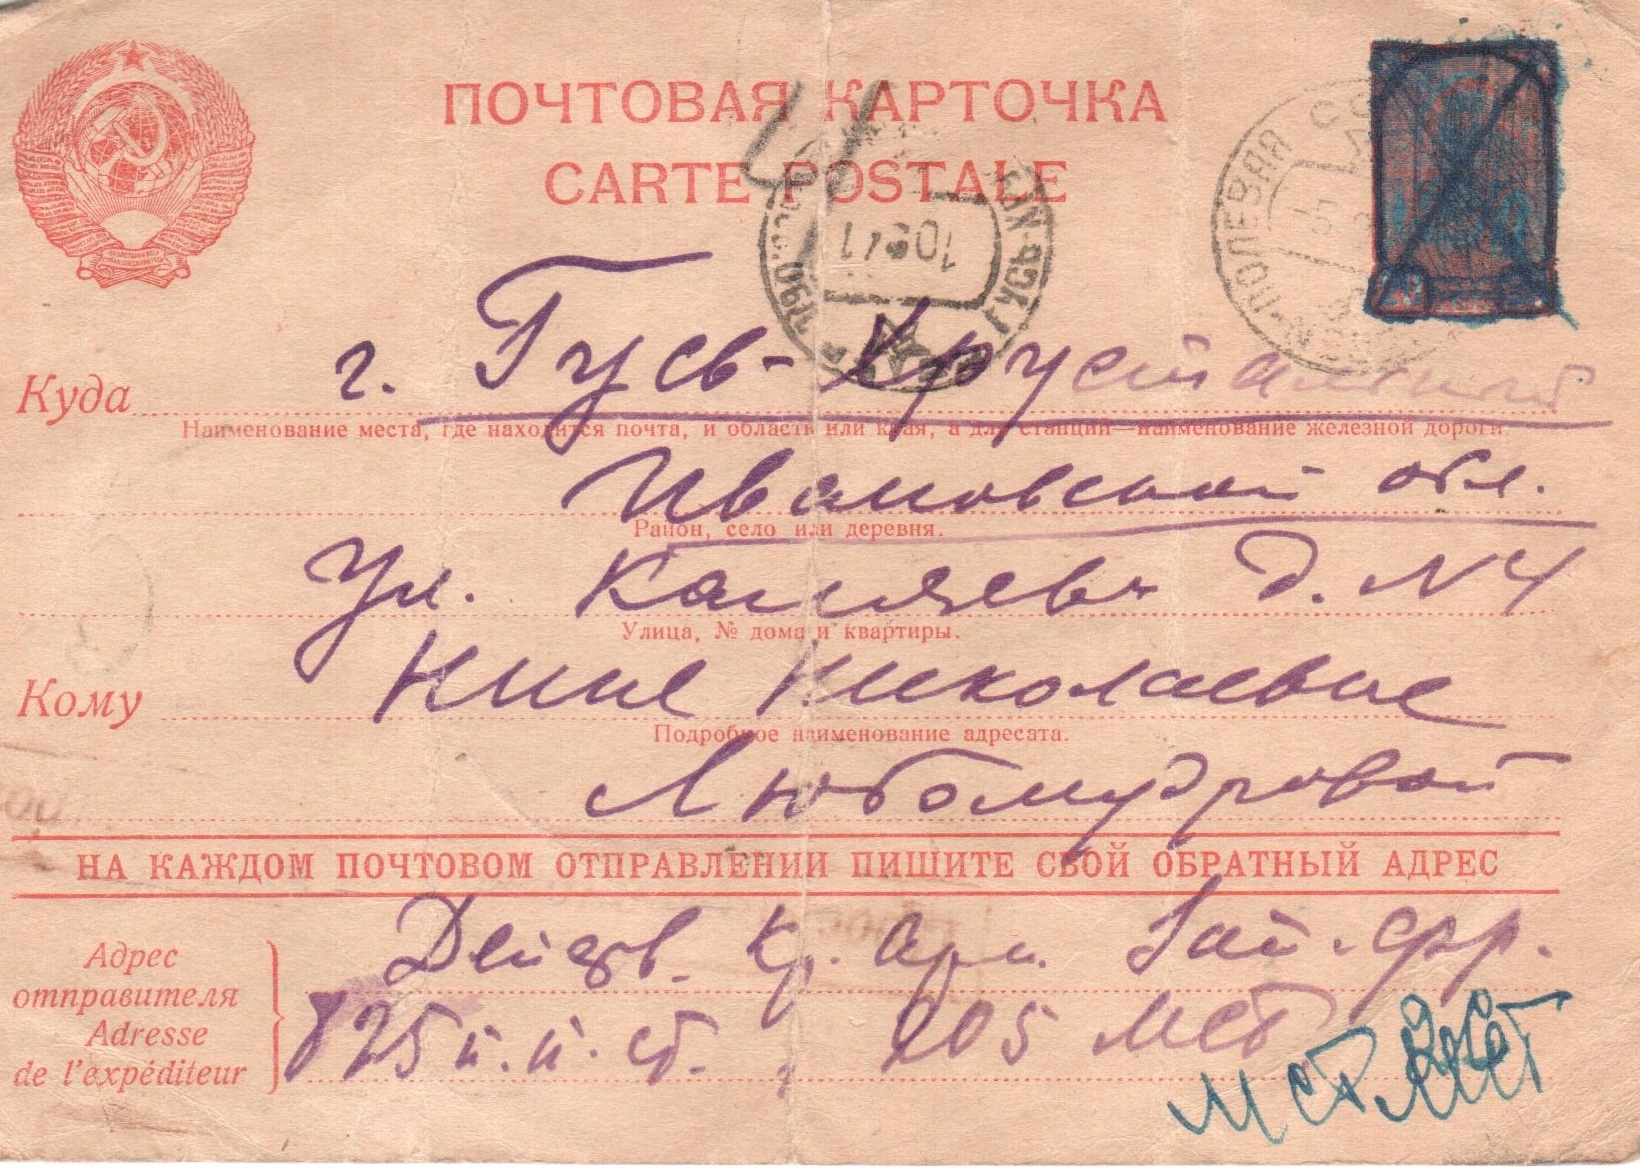 ПОЧТОВАЯ КАРТОЧКА
CARTE POSTALE
ПОЛЕВАЯ
ГУСЬ-ХР
ОБЛ.
10 9 41
Куда г. Гусь-Хрустальный
Наименование места, где находится почта, и область или края, а для станций—наименование железной дороги.
Ивановской обл.
Район, село или деревня.
Ул. Каляева д. N 4
Улица, № дома и квартиры.
Кому Нине Николаевне
Подробное наименование адресата.
Любомудровой
НА КАЖДОМ ПОЧТОВОМ ОТПРАВЛЕНИИ ПИШИТЕ СВОЙ ОБРАТНЫЙ АДРЕС
Адрес отправителя
Adresse de l'expéditeur
Действ. Кр. Арм.
825 п.п. ст. 205 МСБ